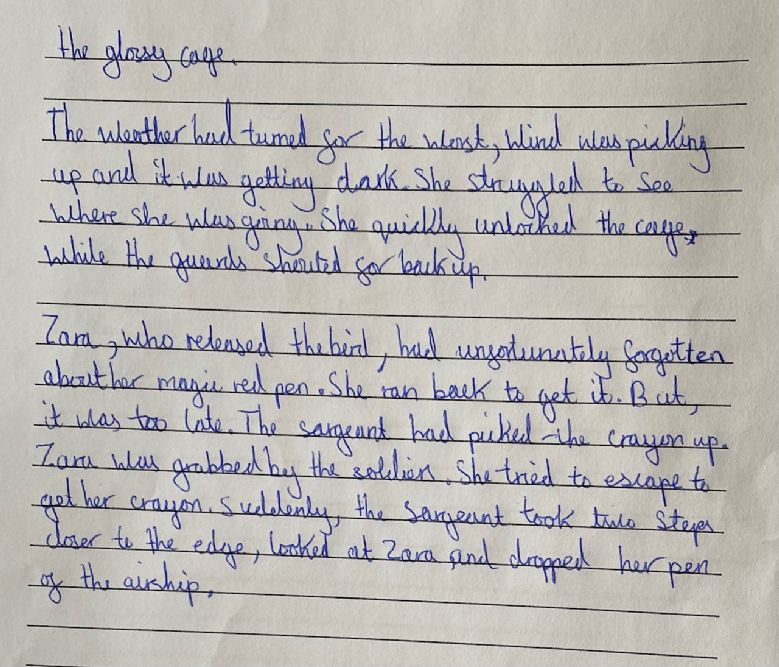 the glossy cage.
The weather had turned for the worst, Wind was picking
up and it was getting dark. She struggled to see
where she was going. She quickly unlocked the cage,
while the guards shouted for back up.
Zara, who released the bird, had unfortunately forgotten
about her magic red pen. She ran back to get it. But,
it was too late. The sargeant had picked the crayon up.
Zara was grabbed by the soldiers. She tried to escape to
get her crayon. Suddenly, the sargeant took two steps
closer to the edge, looked at Zara and dropped her pen
of the airship.